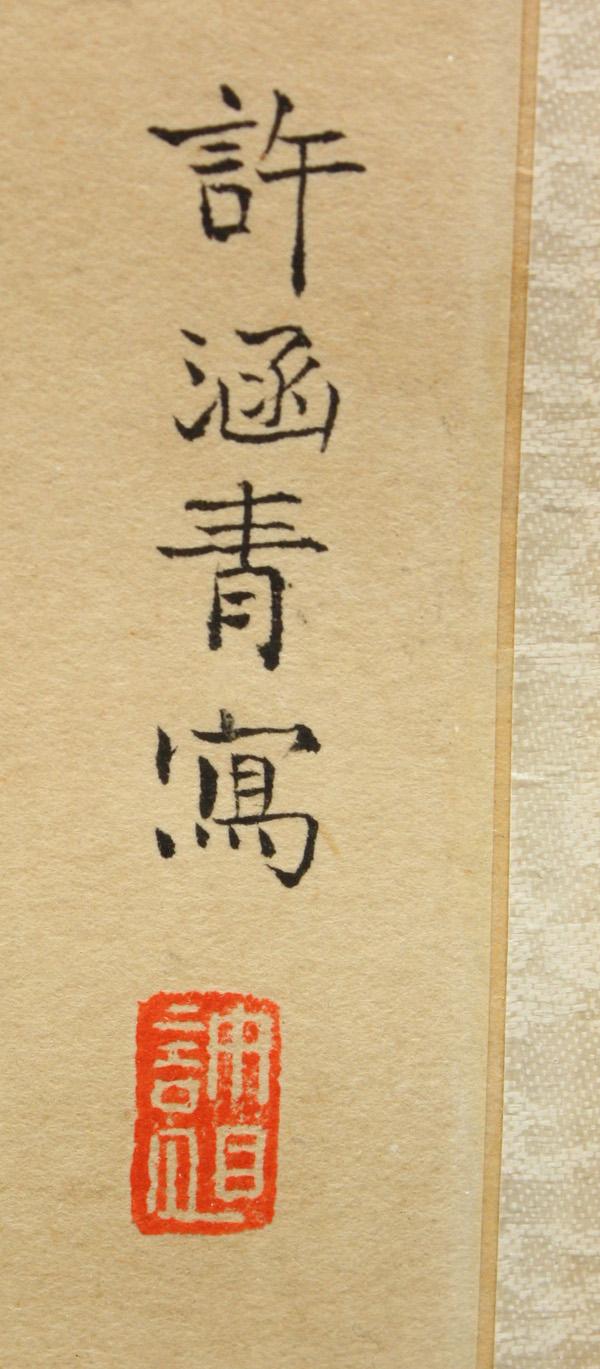 許涵青寫